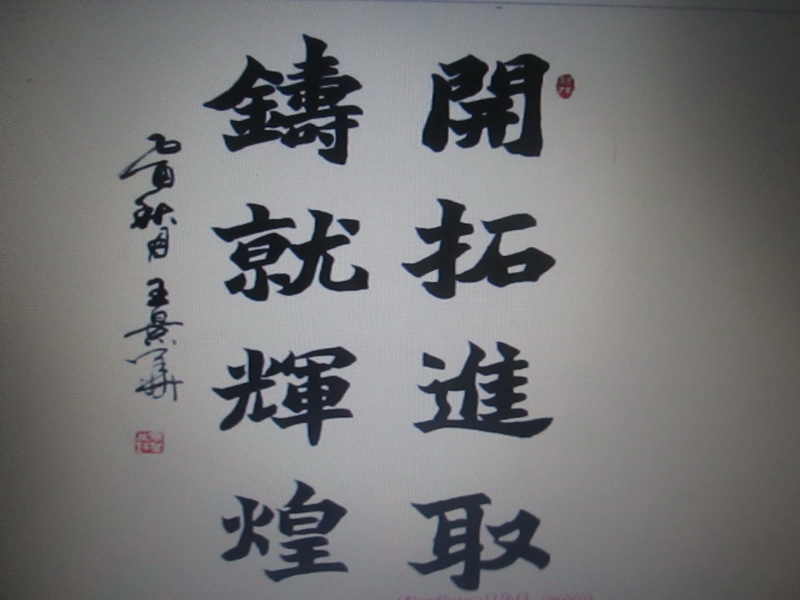 開拓進取
鑄就輝煌
乙酉秋月王景華